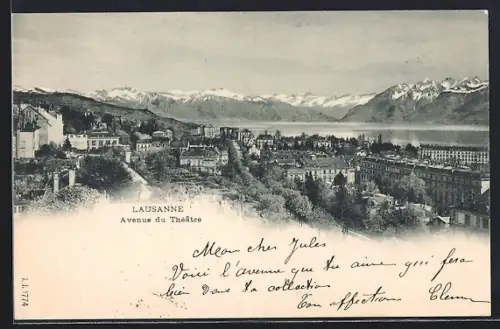 LAUSANNE
Avenue du Théâtre
J.J. 1774
Mon cher Jules
Voici l'avenue que tu aime qui fera
bien dans ta collection
Ton affection